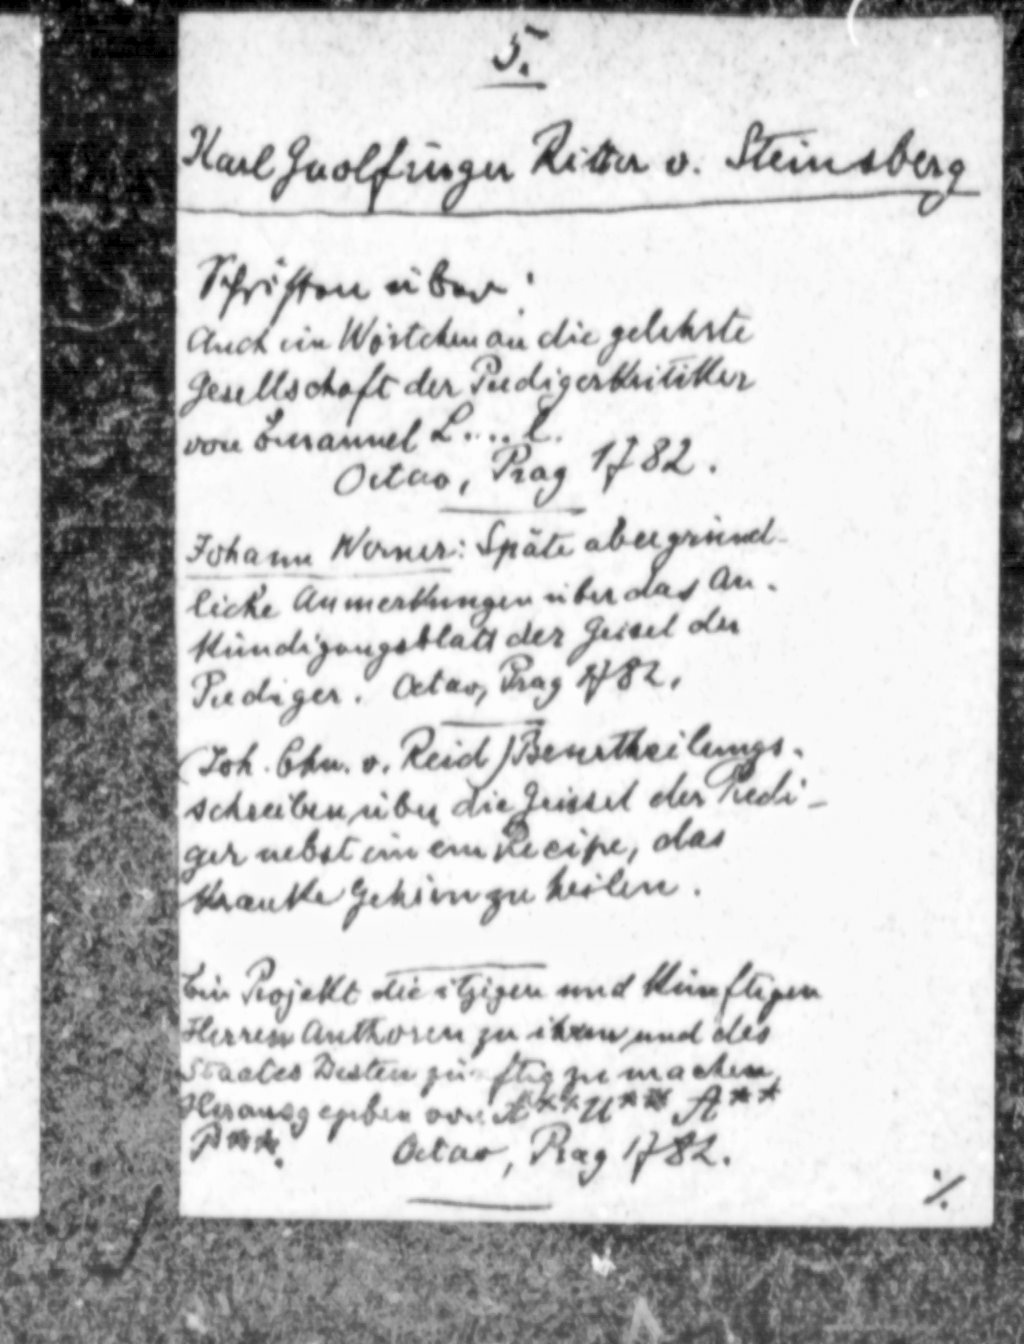 5.
Karl Guolfinger Ritter v. Steinsberg
Schriften über:
Auch ein Wörtchen an die gelehrte
Gesellschaft der Predigerkritiker
von Emanuel L....l.
Octav, Prag 1782.
Johann Werner: Späte aber gründ-
liche Anmerkungen über das An-
kündigungsblatt der Geisel der
Prediger. Octav, Prag 1782.
(Joh. Chn. v. Reid) Beurtheilungs-
schreiben über die Geissel der Predi-
ger nebst einem Recipe, das
kranke Gehirn zu heilen.
Ein Projekt die itzigen und künftigen
Herren Authoren zu ihrem und des
Staates Besten zünftig zu machen
Herausgegeben von A** U** A**
P**. Octav, Prag 1782.
./.